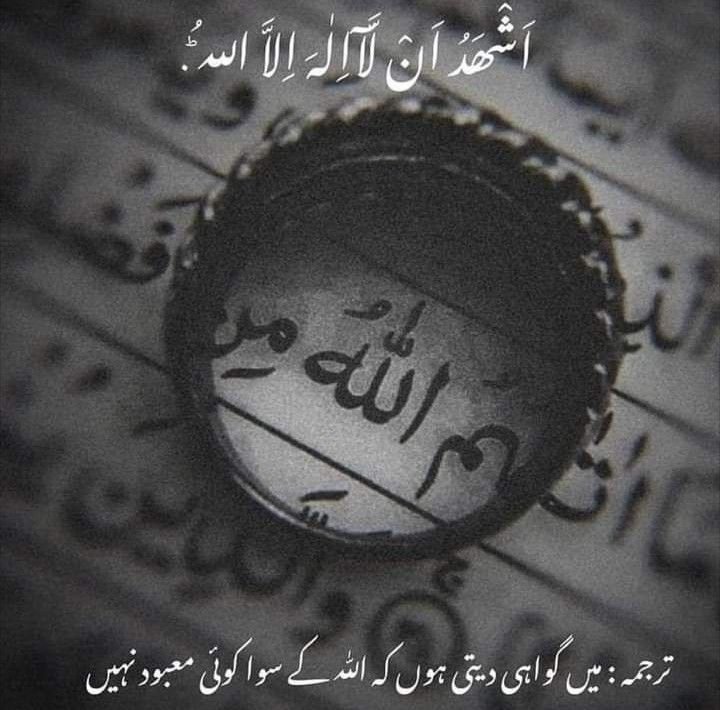 اَشْهَدُ اَنْ لَّآ اِلٰهَ اِلَّا اللہُ.
اللّٰهُ مِنْ
وَالَّذِيْنَ
ترجمہ: میں گواہی دیتی ہوں کہ اللہ کے سوا کوئی معبود نہیں